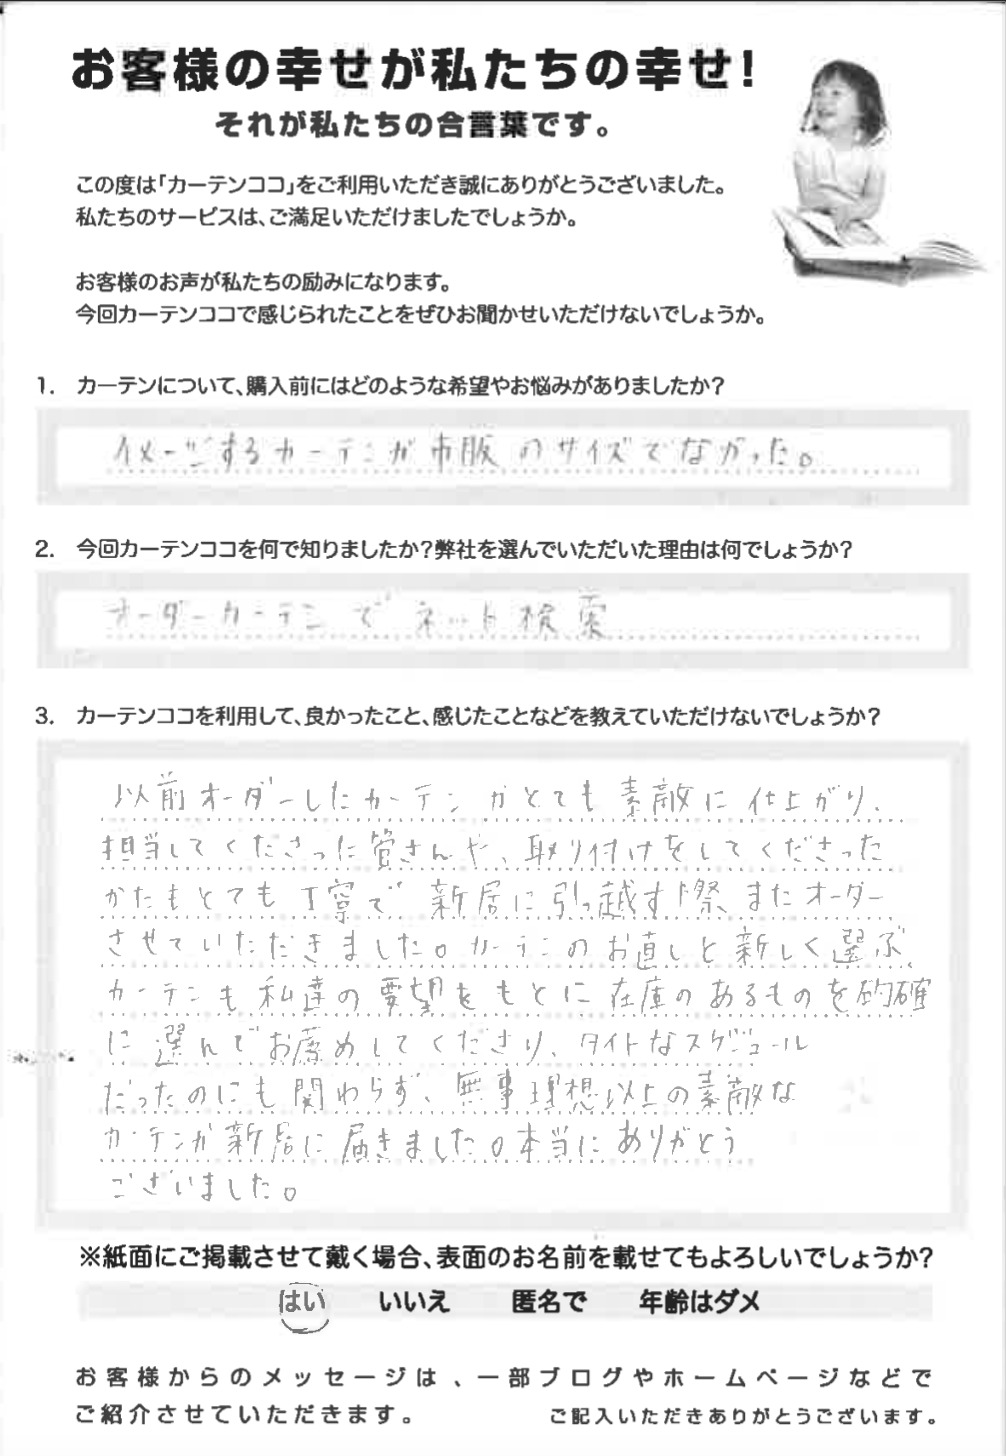 お客様の幸せが私たちの幸せ!
それが私たちの合言葉です。
この度は「カーテンココ」をご利用いただき誠にありがとうございました。
私たちのサービスは、ご満足いただけましたでしょうか。
お客様のお声が私たちの励みになります。
今回カーテンココで感じられたことをぜひお聞かせいただけないでしょうか。
1. カーテンについて、購入前にはどのような希望やお悩みがありましたか?
イメージするカーテンが市販のサイズでなかった。
2. 今回カーテンココを何で知りましたか?弊社を選んでいただいた理由は何でしょうか?
オーダーカーテンで ネット検索
3. カーテンココを利用して、良かったこと、感じたことなどを教えていただけないでしょうか?
以前オーダーしたカーテンがとても素敵に仕上がり、
担当してくださった菅さんや、取り付けをしてくださった
かたもとても丁寧で 新居に引っ越す際、またオーダー
させていただきました。カーテンのお直しと新しく選ぶ
カーテンも私達の要望をもとに在庫のあるものを的確
に選んでお薦めしてくださり、タイトなスケジュール
だったのにも関わらず、無事理想以上の素敵な
カーテンが新居に届きました。本当にありがとう
ございました。
※紙面にご掲載させて戴く場合、表面のお名前を載せてもよろしいでしょうか?
はい いいえ 匿名で 年齢はダメ
お客様からのメッセージは、一部ブログやホームページなどで
ご紹介させていただきます。 ご記入いただきありがとうございます。